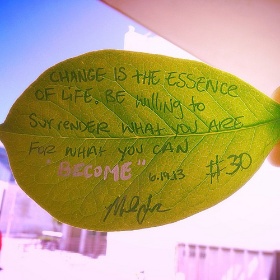 CHANGE IS tHE ESSENCE
OF LIFE. BE willing to
SurrENDER WHAT YOU ARE
FOR WHAT YOU CAN
"BECOME" 6.19.13 #30